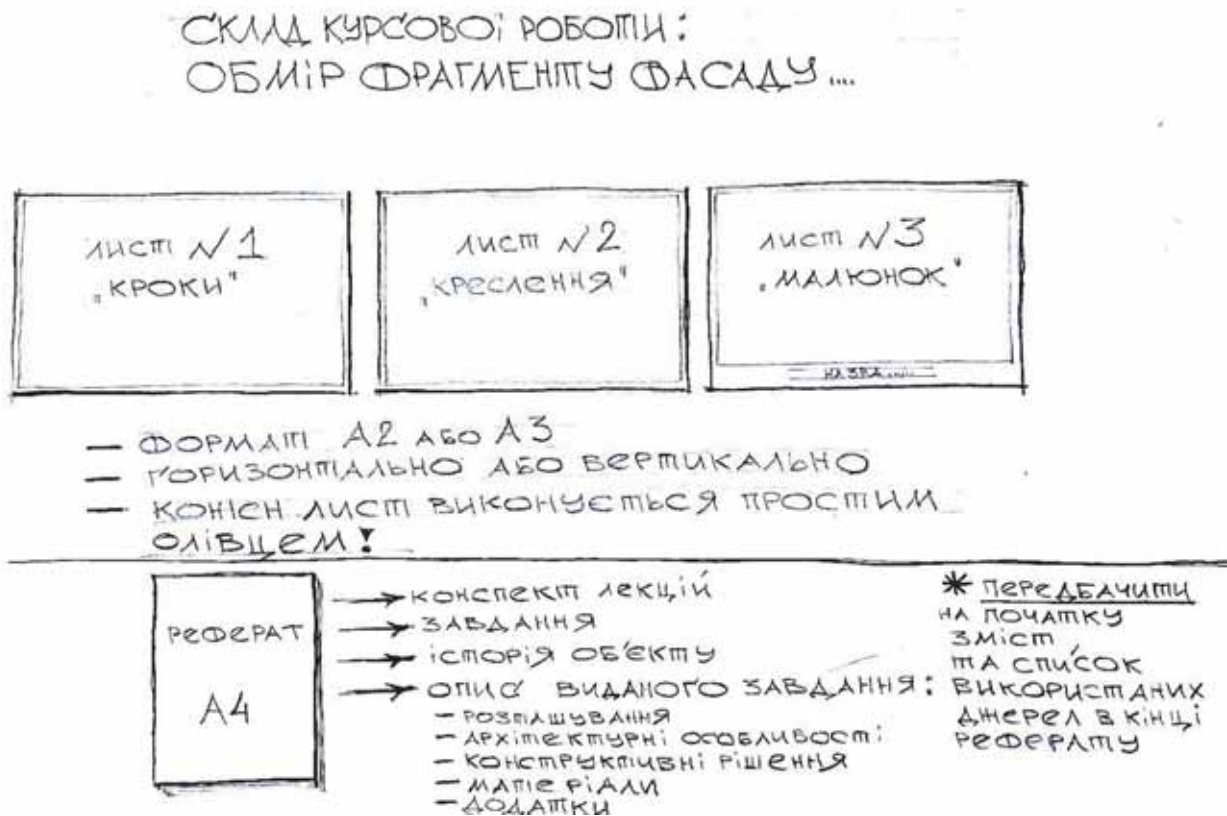 СКЛАД КУРСОВОЇ РОБОТИ:
ОБМІР ФРАГМЕНТУ ФАСАДУ....
ЛИСТ №1
„КРОКИ"
ЛИСТ №2
„КРЕСЛЕННЯ"
ЛИСТ №3
„МАЛЮНОК"
НАЗВА.....
— ФОРМАТ А2 АБО А3
— ГОРИЗОНТАЛЬНО АБО ВЕРТИКАЛЬНО
— КОЖЕН ЛИСТ ВИКОНУЄТЬСЯ ПРОСТИМ
ОЛІВЦЕМ!
РЕФЕРАТ
А4
→ КОНСПЕКТ ЛЕКЦІЙ
→ ЗАВДАННЯ
→ ІСТОРІЯ ОБ'ЄКТУ
→ ОПИС ВИДАНОГО ЗАВДАННЯ:
— РОЗТАШУВАННЯ
— АРХІТЕКТУРНІ ОСОБЛИВОСТІ
— КОНСТРУКТИВНІ РІШЕННЯ
— МАТЕРІАЛИ
— ДОДАТКИ
* ПЕРЕДБАЧИТИ
НА ПОЧАТКУ
ЗМІСТ
ТА СПИСОК
ВИКОРИСТАНИХ
ДЖЕРЕЛ В КІНЦІ
РЕФЕРАТУ